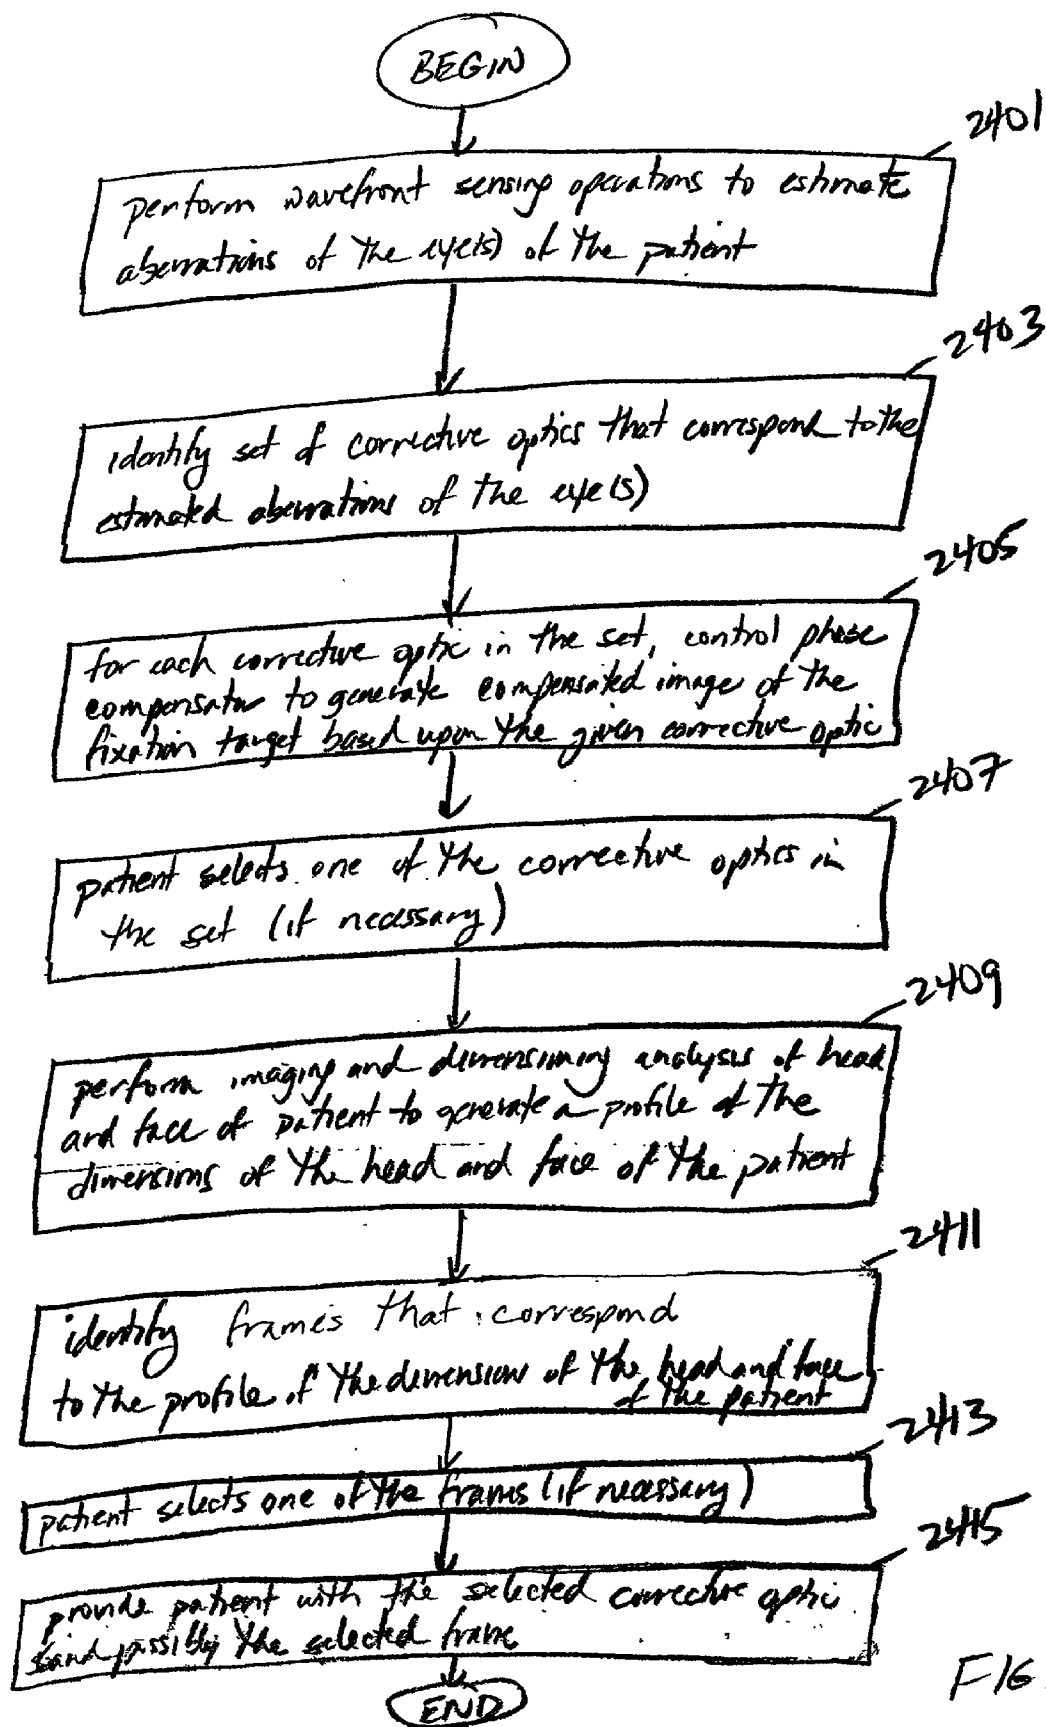 BEGIN
2401
perform wavefront sensing operations to estimate
aberrations of the eye(s) of the patient
2403
identify set of corrective optics that correspond to the
estimated aberrations of the eye(s)
2405
for each corrective optic in the set, control phase
compensator to generate compensated image of the
fixation target based upon the given corrective optic
2407
patient selects one of the corrective optics in
the set (if necessary)
2409
perform imaging and dimensioning analysis of head
and face of patient to generate a profile of the
dimensions of the head and face of the patient
2411
identify frames that correspond
to the profile of the dimension of the head and face
of the patient
2413
patient selects one of the frames (if necessary)
2415
provide patient with the selected corrective optic
and possibly the selected frame
END
FIG.